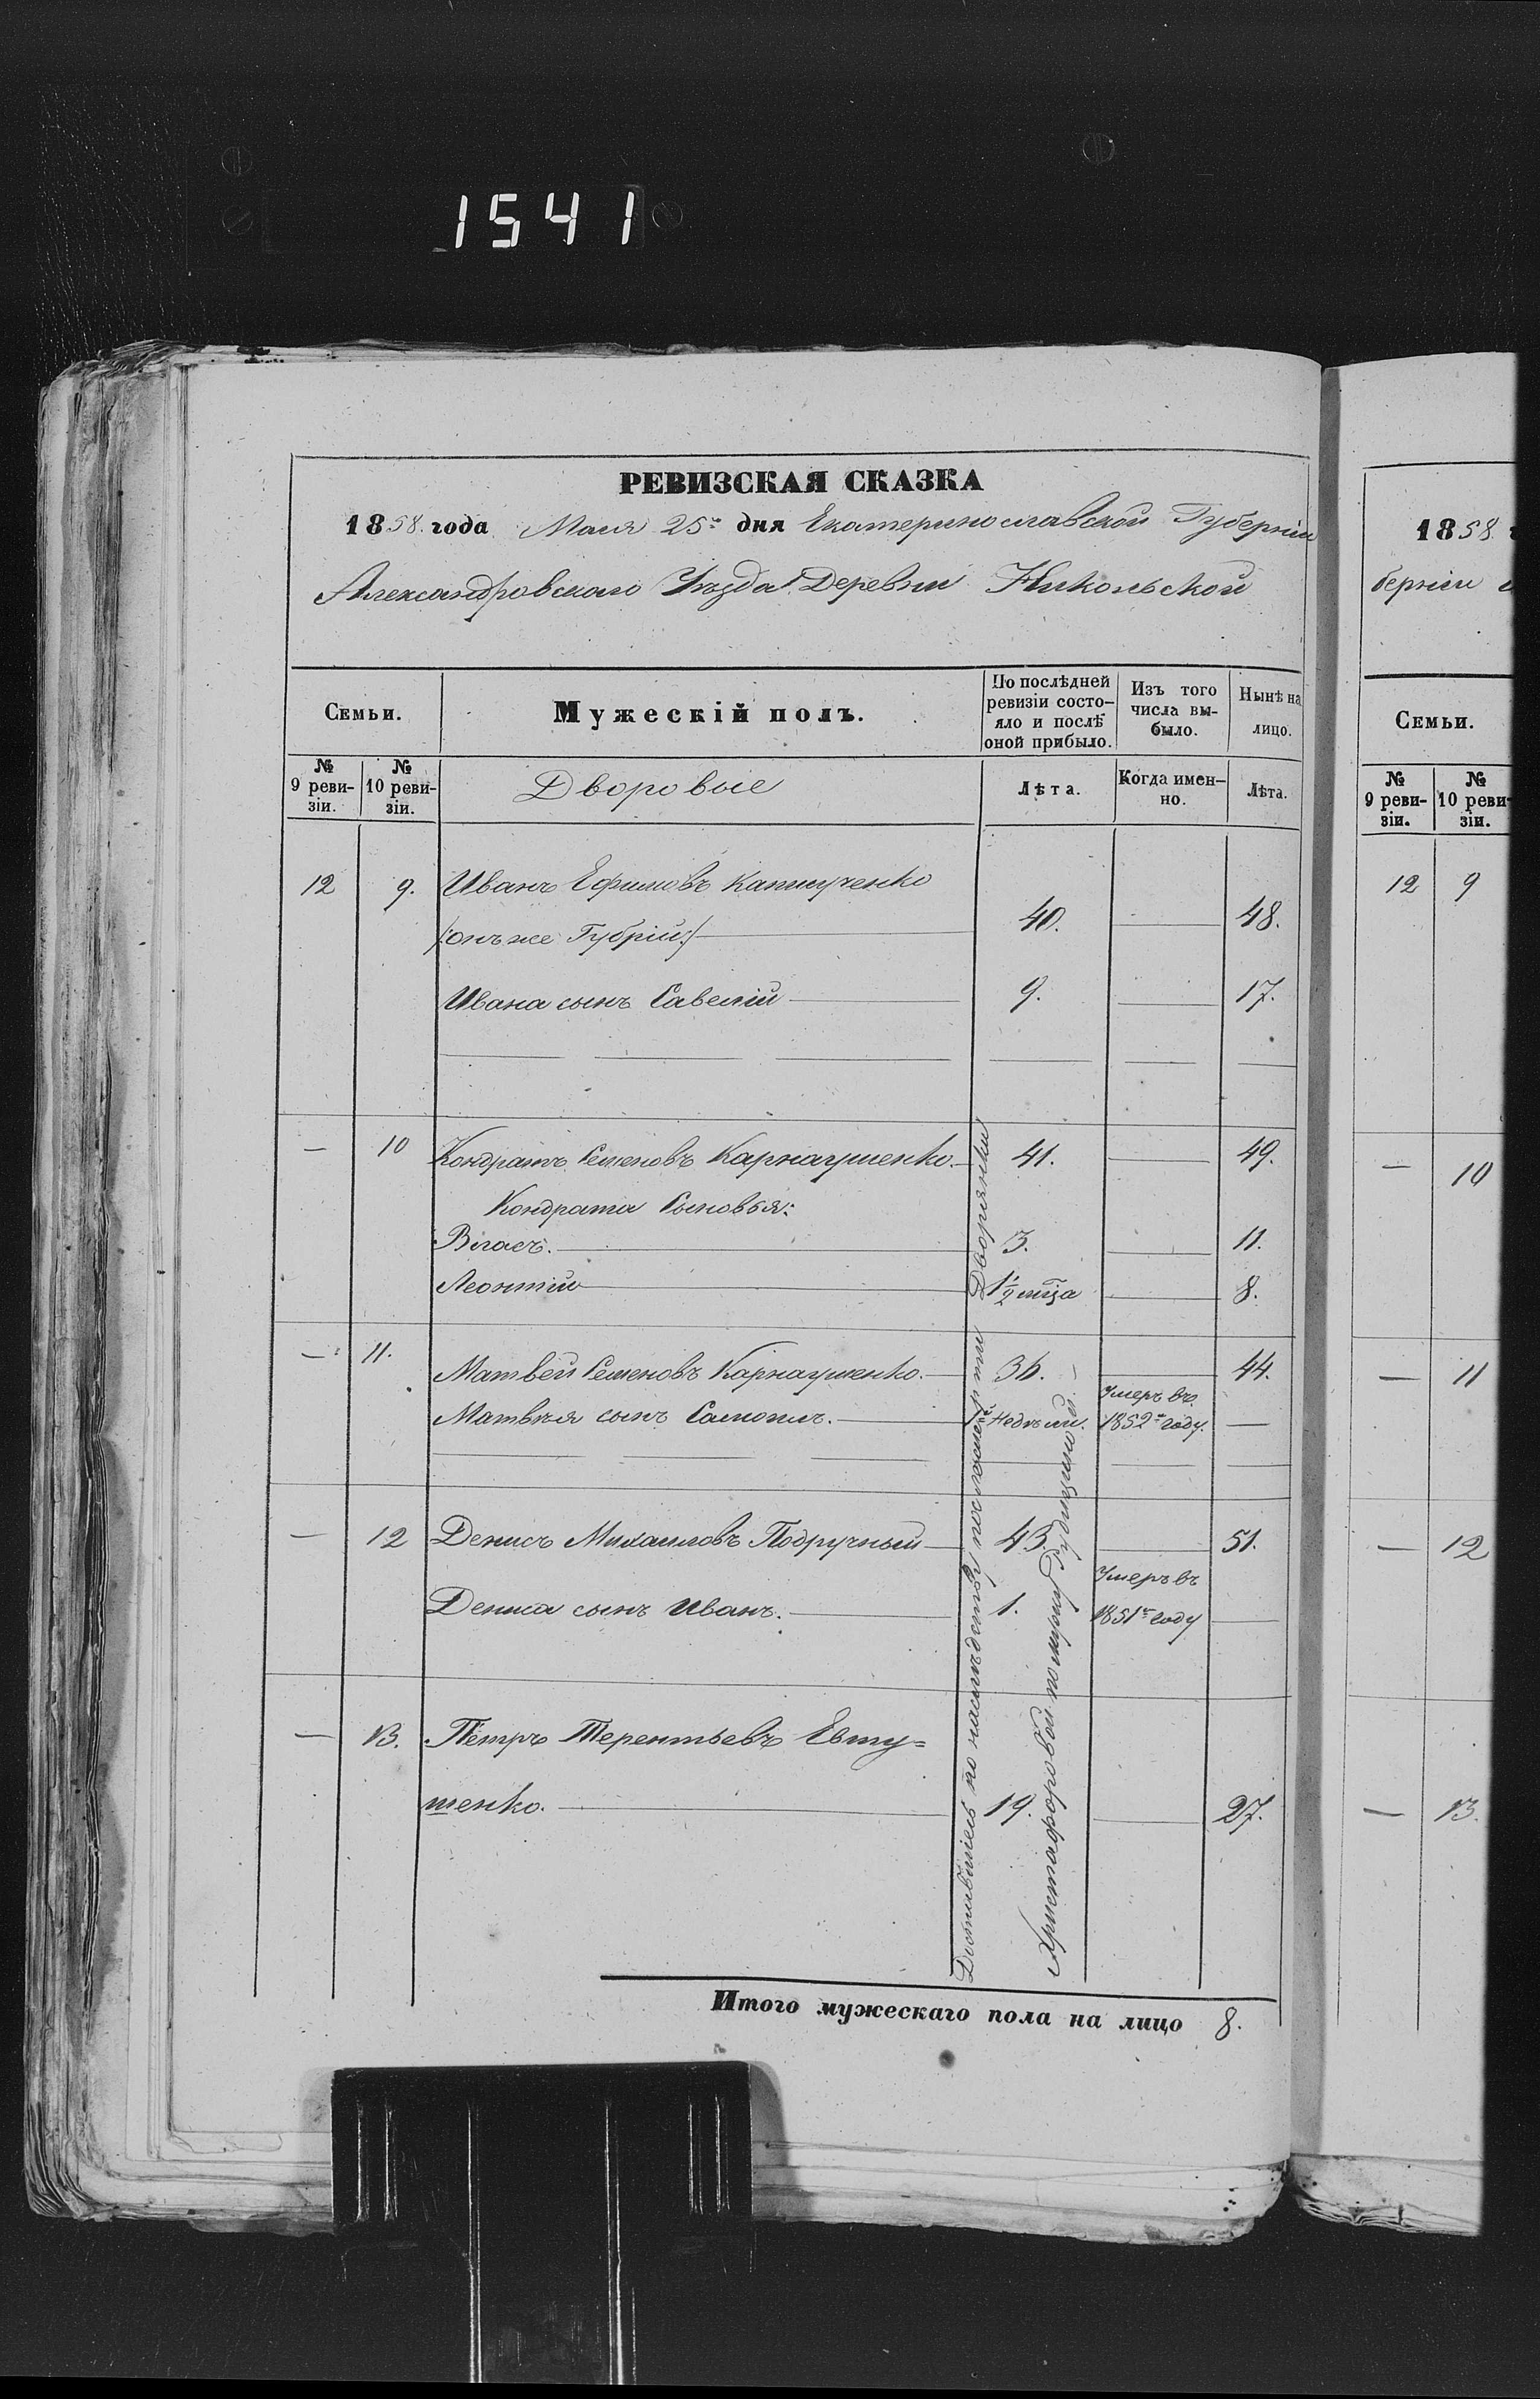 1541
РЕВИЗСКАЯ СКАЗКА
1858. года Мая 25го дня Екатеринославской Губерніи
Александровскаго Уѣзда Деревни Никольской
Семьи.
Мужескій полъ.
По послѣдней ревизіи состояло и послѣ оной прибыло.
Изъ того числа выбыло.
Нынѣ на лицо.
№ 9 ревизіи.
№ 10 ревизіи.
Дворовые
Лѣта.
Когда именно.
Лѣта.
12 9. Иванъ Ефимовъ
/:онъ же Губрій:/ 40. — 48.
Ивана сынъ Савелій 9. — 17.
— 10 Кондратъ Семеновъ Карнаушенко. 41. — 49.
Кондрата Сыновья:
Власъ. 3. — 11.
Леонтій 1½ мца — 8.
— 11. Матвей Семеновъ Карнаушенко. 36. — 44.
Матвѣя сынъ Самоилъ. 1й Недѣли. Умеръ въ 1852м году. —
— 12 Денисъ Михаиловъ Подручный 43. — 51.
Дениса сынъ Иванъ. 1. Умеръ въ 1851м году —
— 13. Петръ Терентьевъ Евту=
шенко. 19. — 27.
Доставшіесь по наслѣдству послѣ смерти Дворянки
Христафоровой помѣщику
Итого мужескаго пола на лицо 8.
1858
берніи
Семьи.
№ 9 ревизіи.
№ 10 ревизіи.
12 9
— 10
— 11
— 12
— 13.